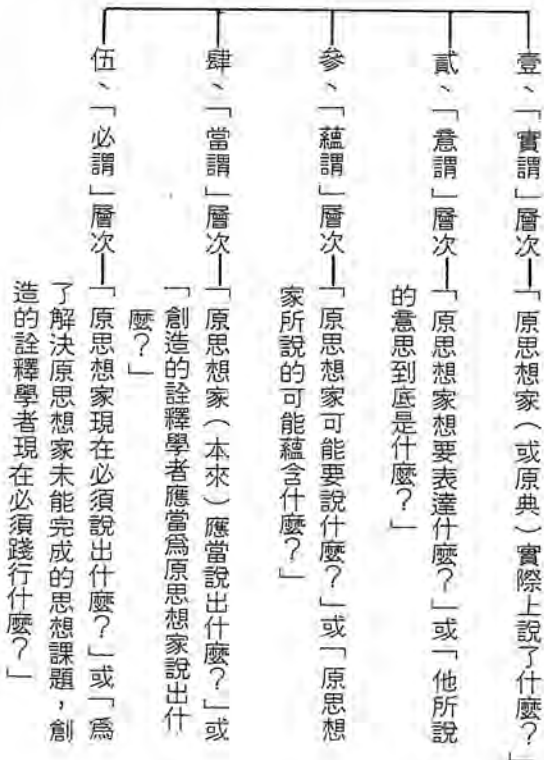 壹、「實謂」層次—「原思想家（或原典）實際上說了什麼？」
貳、「意謂」層次—「原思想家想要表達什麼？」或「他所說
的意思到底是什麼？」
參、「蘊謂」層次—「原思想家可能要說什麼？」或「原思想
家所說的可能蘊含什麼？」
肆、「當謂」層次—「原思想家（本來）應當說出什麼？」或
「創造的詮釋學者應當爲原思想家說出什
麼？」
伍、「必謂」層次—「原思想家現在必須說出什麼？」或「爲
了解決原思想家未能完成的思想課題，創
造的詮釋學者現在必須踐行什麼？」